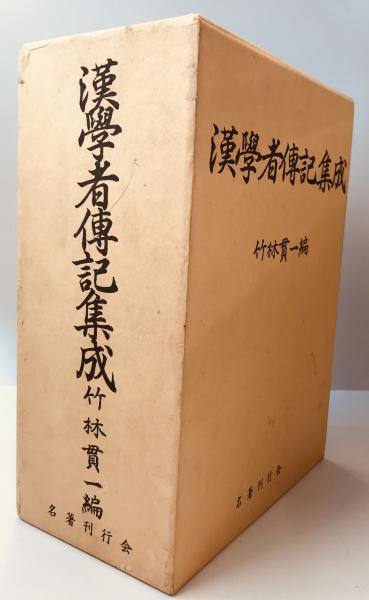 漢學者傳記集成
竹林貫一編
名著刊行会
漢學者傳記集成
竹林貫一編
名著刊行会